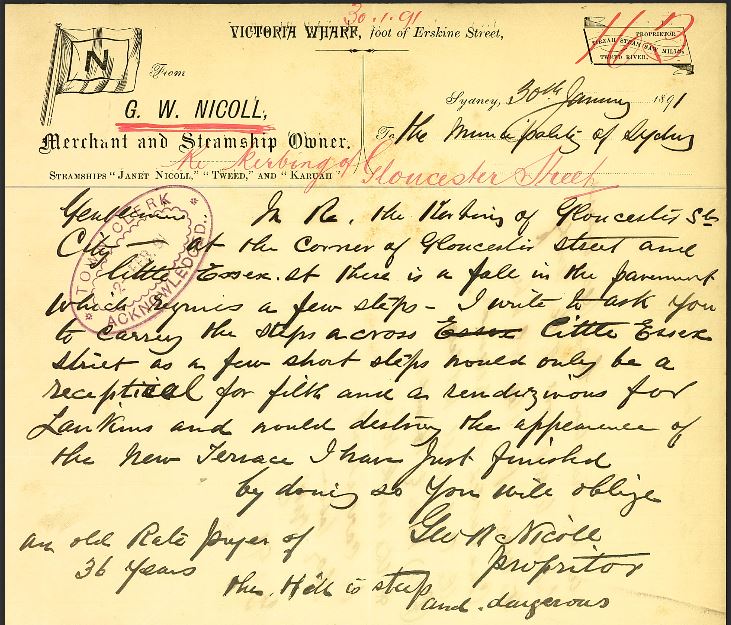 30.1.91
VICTORIA WHARF, foot of Erskine Street,
HB
PROPRIETOR
STEAM SAW MILLS,
TWEED RIVER.
N
From
G. W. NICOLL,
Merchant and Steamship Owner.
STEAMSHIPS "JANET NICOLL," "TWEED," AND "KARUAH"
Sydney, 30th January 1891
To the Municipality of Sydney
Re kerbing of Gloucester Street
TOWN CLERK
ACKNOWLEDGED
Gentlemen In Re. the Kerbing of Gloucester St
City — at the corner of Gloucester Street and
Little Essex. St there is a fall in the pavement
which requires a few steps - I write to ask you
to carrey the steps across Essex Little Essex
Street as a few short steps would only be a
receptical for filth and a rendizvous for
Larikins and would destroy the appearence of
the New Terrace I have Just finished
by doing so You will oblige
Geo W Nicoll
Propritor
an old Rate payer of
36 years
the Hill is steep
and dangerous